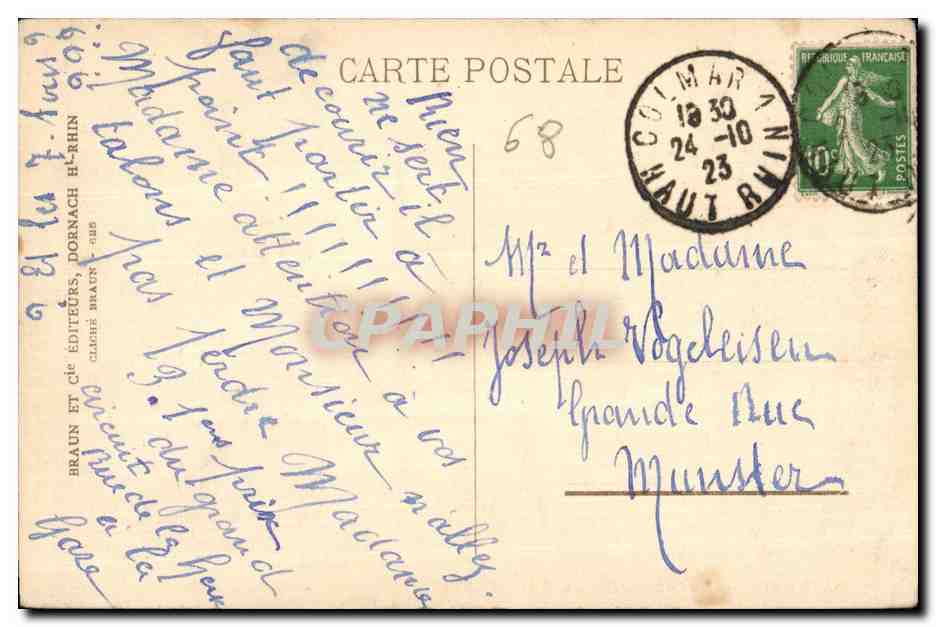 CARTE POSTALE
COLMAR A
18 30
24 -10
23
HAUT RHIN
REPUBLIQUE FRANÇAISE
10c
POSTES
68
Rien
ne sert il à
de courir
faut partir à
point !!!!!!!!!!
Madame attention à vos
talons et Monsieur n'allez
pas perdre Madame
3. 1ers prix
du grand
circuit
Rue de la
à la
Gare
Et les 7 -
Mr et Madame
Joseph Vogeleisen
Grande Rue
Munster
BRAUN ET Cie EDITEURS, DORNACH Ht-RHIN
CLICHÉ BRAUN
CPAPHIL